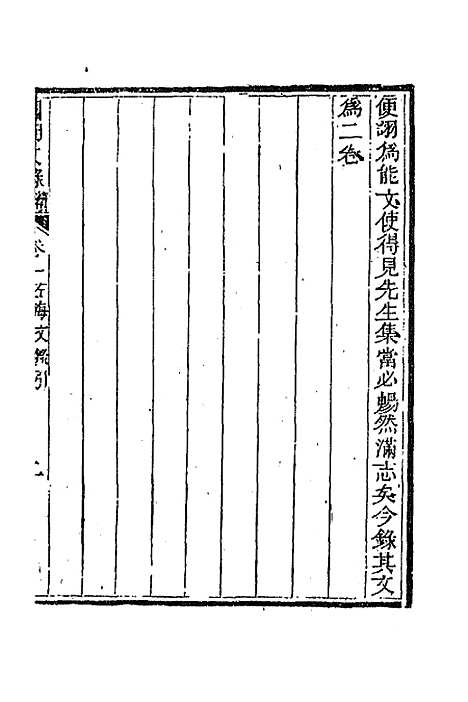 便詡爲能文使得見先生集當必暢然滿志矣今錄其文
爲二卷
國朝文錄續編 卷一 文錄引